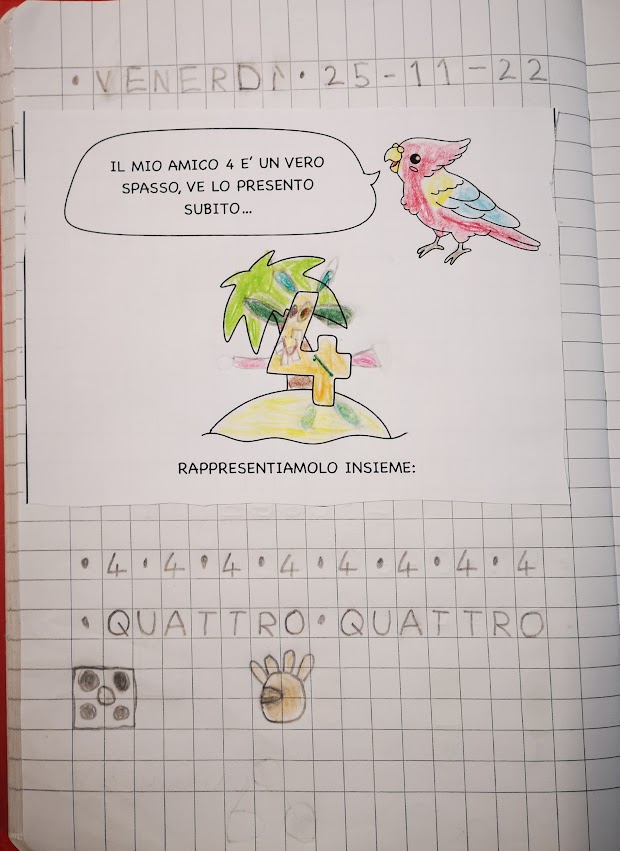 • VENERDÌ • 25-11-22
IL MIO AMICO 4 E' UN VERO
SPASSO, VE LO PRESENTO
SUBITO...
4
RAPPRESENTIAMOLO INSIEME:
• 4 • 4 • 4 • 4 • 4 • 4 • 4 • 4
• QUATTRO • QUATTRO